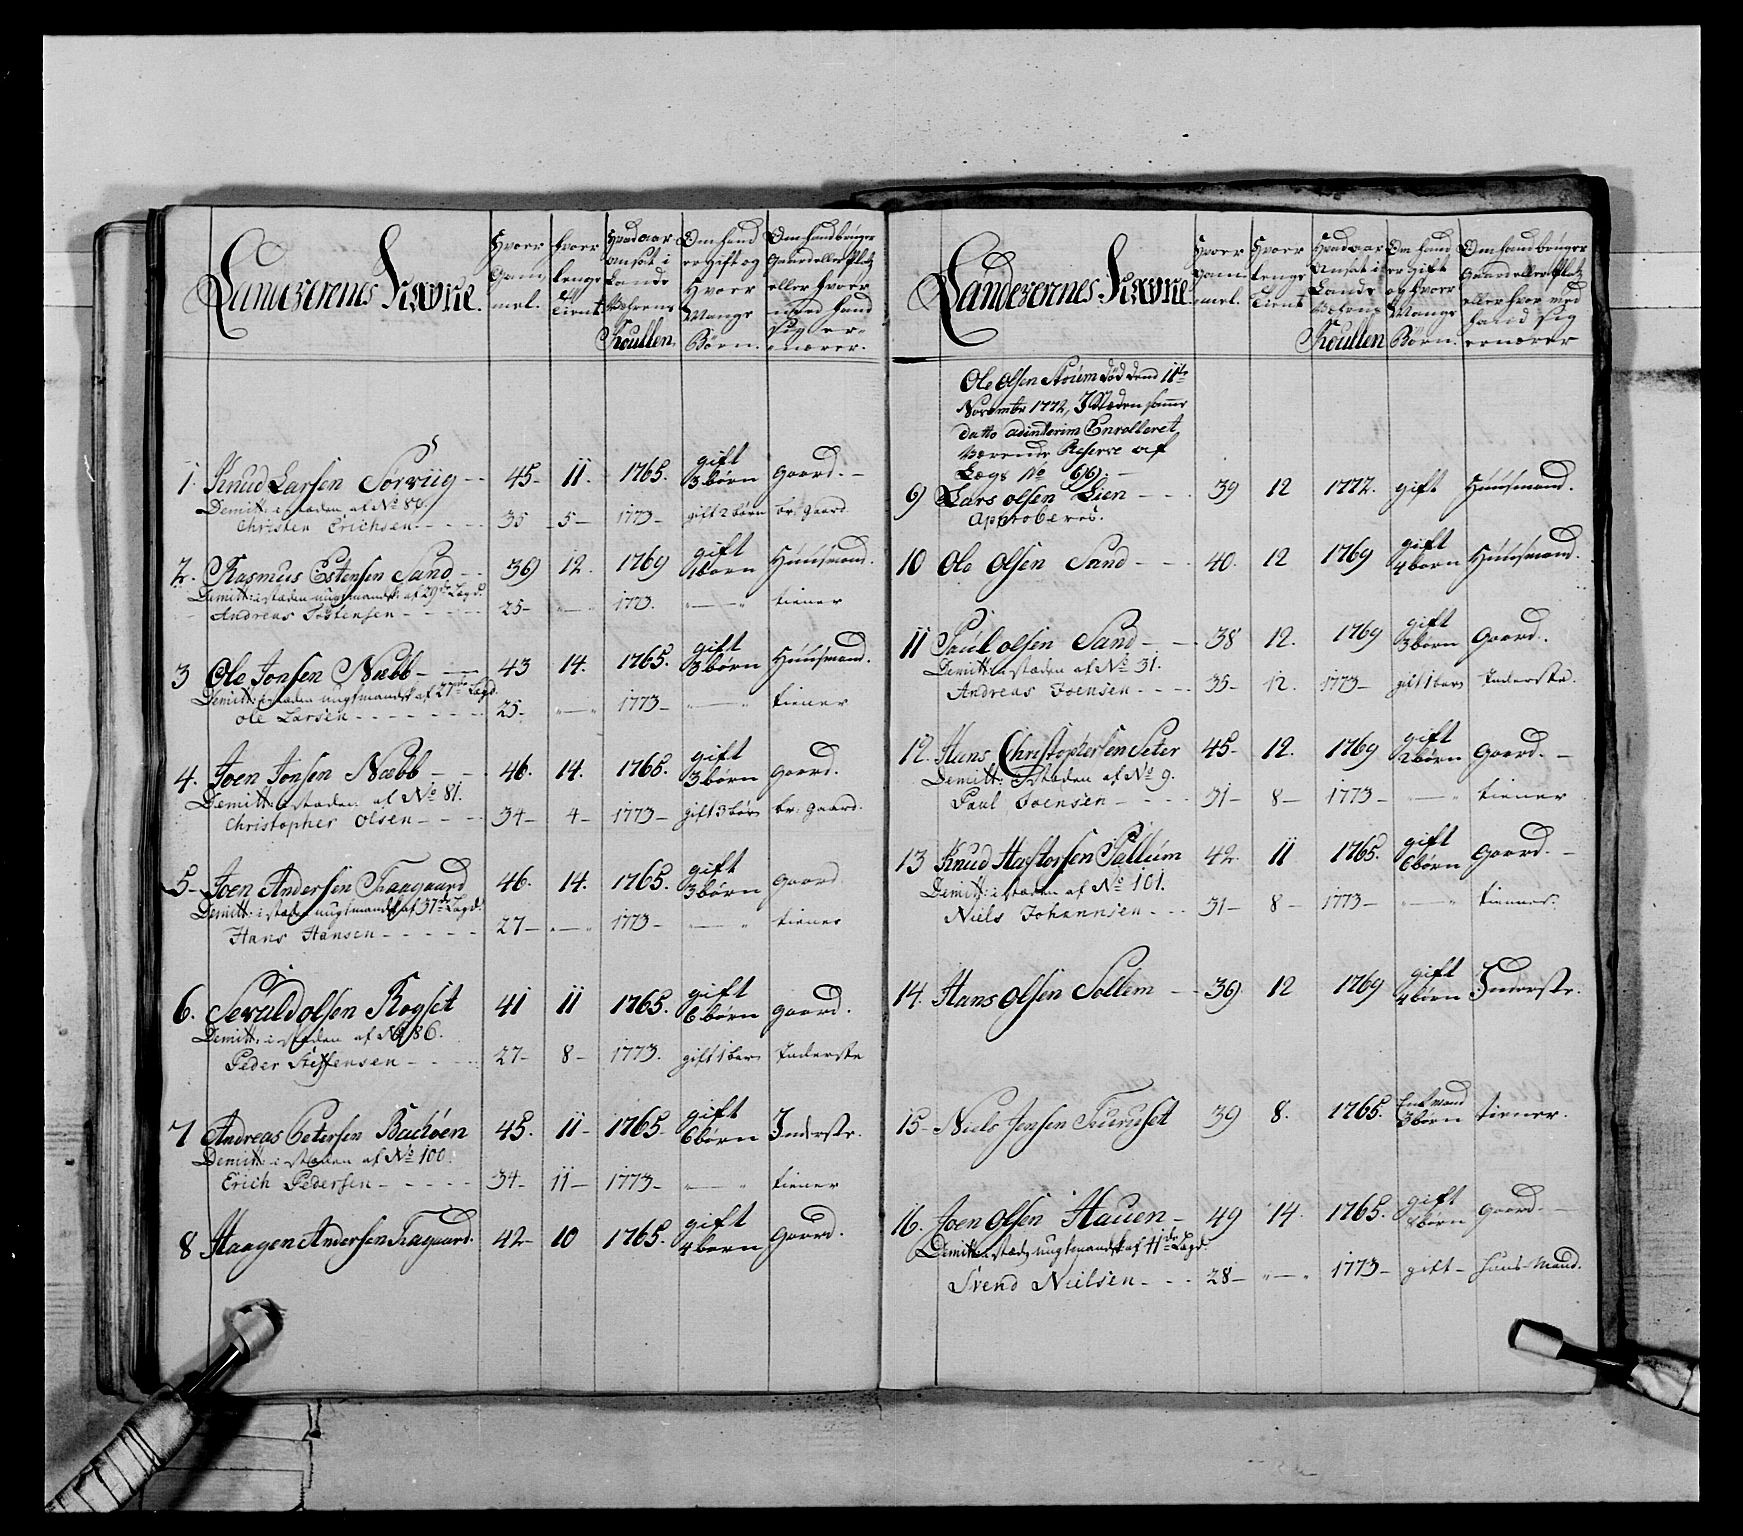 Landevernes Navne.
Hvoer Gammel.
Hvoer lenge Tient
Hvad aar ansat i Lande Vehrens Roullen
Om hand er gift og Hvoer Mange Börn.
Om hand bruger Gaard eller Platz eller hvor med hand sig ernærer.
1. Knud Larsen Sørviig -- 45- 11. 1765. gift 3 börn gaard.-
Demitt: i stæden af No 80.
Christen Erichsen - - - - 35 - 5 - 1773 - gift 2 börn br: gaard
2. Rasmus Estensen Sand - - 39 12. 1769 gift 1 barn Huusmand.
Demitt: i stæden ungtmandsk: af 29de Lægd.
Andreas Tostensen - - - - - 25- " — " 1773. " — " tiener
3 Ole Jonsen Næbb - - - 43 14. 1765. gift 3 börn Huusmand.
Demitt: i stæden ungtmandsk af 27de Lægd.
Ole Larsen - - - - - - - 25- " — " 1773 - " — " tiener
4. Joen Jonsen Næbb - - - 46. 14. 1765. gift 3 börn gaard.
Demitt: i stæden af No 81.
Christopher Olsen - - - 34- 4- 1773 - gift 3 börn br: gaard.
5- Joen Andersen Traagaard 46. 14. 1765. gift 3 börn gaard
Demitt: i stæden ungtmandsk af 37de Lægd:
Hans Hansen - - - - - 27- " — " 1773 - " — " tiener
6. Sevald Olsen Rogset 41 11 1765. gift 6 börn gaard.
Demitt: i stæden af No 86.
Peder Steffensen - - - - 27- 8 - 1773. gift 1 barn Inderste
7 Andreas Petersen Bachøen 45. 11- 1765- gift 6 börn Inderste.
Demitt: i stæden af No 100.
Erich Pedersen - - - - - 34- 11 - 1773 - " — " tiener
8 Haagen Andersen Traagaard. 42- 10 1765. gift 4 börn gaard.
Landevernes Navne.
Hvoer Gammel.
Hvoer lenge Tient
Hvad aar Ansat i Lande Vehrens Roullen
Om hand er gift og hvoer Mange Börn.
Om hand bruger Gaard eller Platz eller hvor med hand sig ernærer
Ole Olsen Storem död dend 11te
Novembr 1772, I Stæden samme
datto adinterim Enrolleret
værende Reserve af
Lægs No 66. -
9) Lars Olsen Lien - - - 39 12 1772. gift Huusmand.
Approberes.
10 Ole Olsen Sand - - - 40. 12 1769 gift 4 börn Huusmand.
11 Paul Olsen Sand - - - 38 12. 1769 gift 3 börn gaard.
Demitt: i stæden af No 31.
Andreas Joensen - - - - 35- 12. 1773 - gift 1 barn Inderste.
12. Hans Christophersen Seter 45- 12. 1769 gift 2 börn gaard. -
Demitt: i stæden af No 9.
Paul Joensen - - - - 31- 8 - 1773 - " — " tiener
13 Knud Hastorsen Sallum 42. 11 1765. gift 6 börn gaard. -
Demitt: i stæden af No 101.
Niels Johannsen - - - 31- 8 - 1773 - " — " tiener.
14. Hans Olsen Sollem - - 39. 12 1769 gift 4 börn Inderste.
15- Niels Jensen Furuset 39 8. 1765. Enkemand 3 börn tiener.
16. Joen Olsen Hauen - 49 14. 1765. gift börn gaard. -
Demitt: i stæd: ungtmandsk af 41de Lægd:
Svend Nielsen - - - 28- " — " 1773 - gift - huus-Mand.